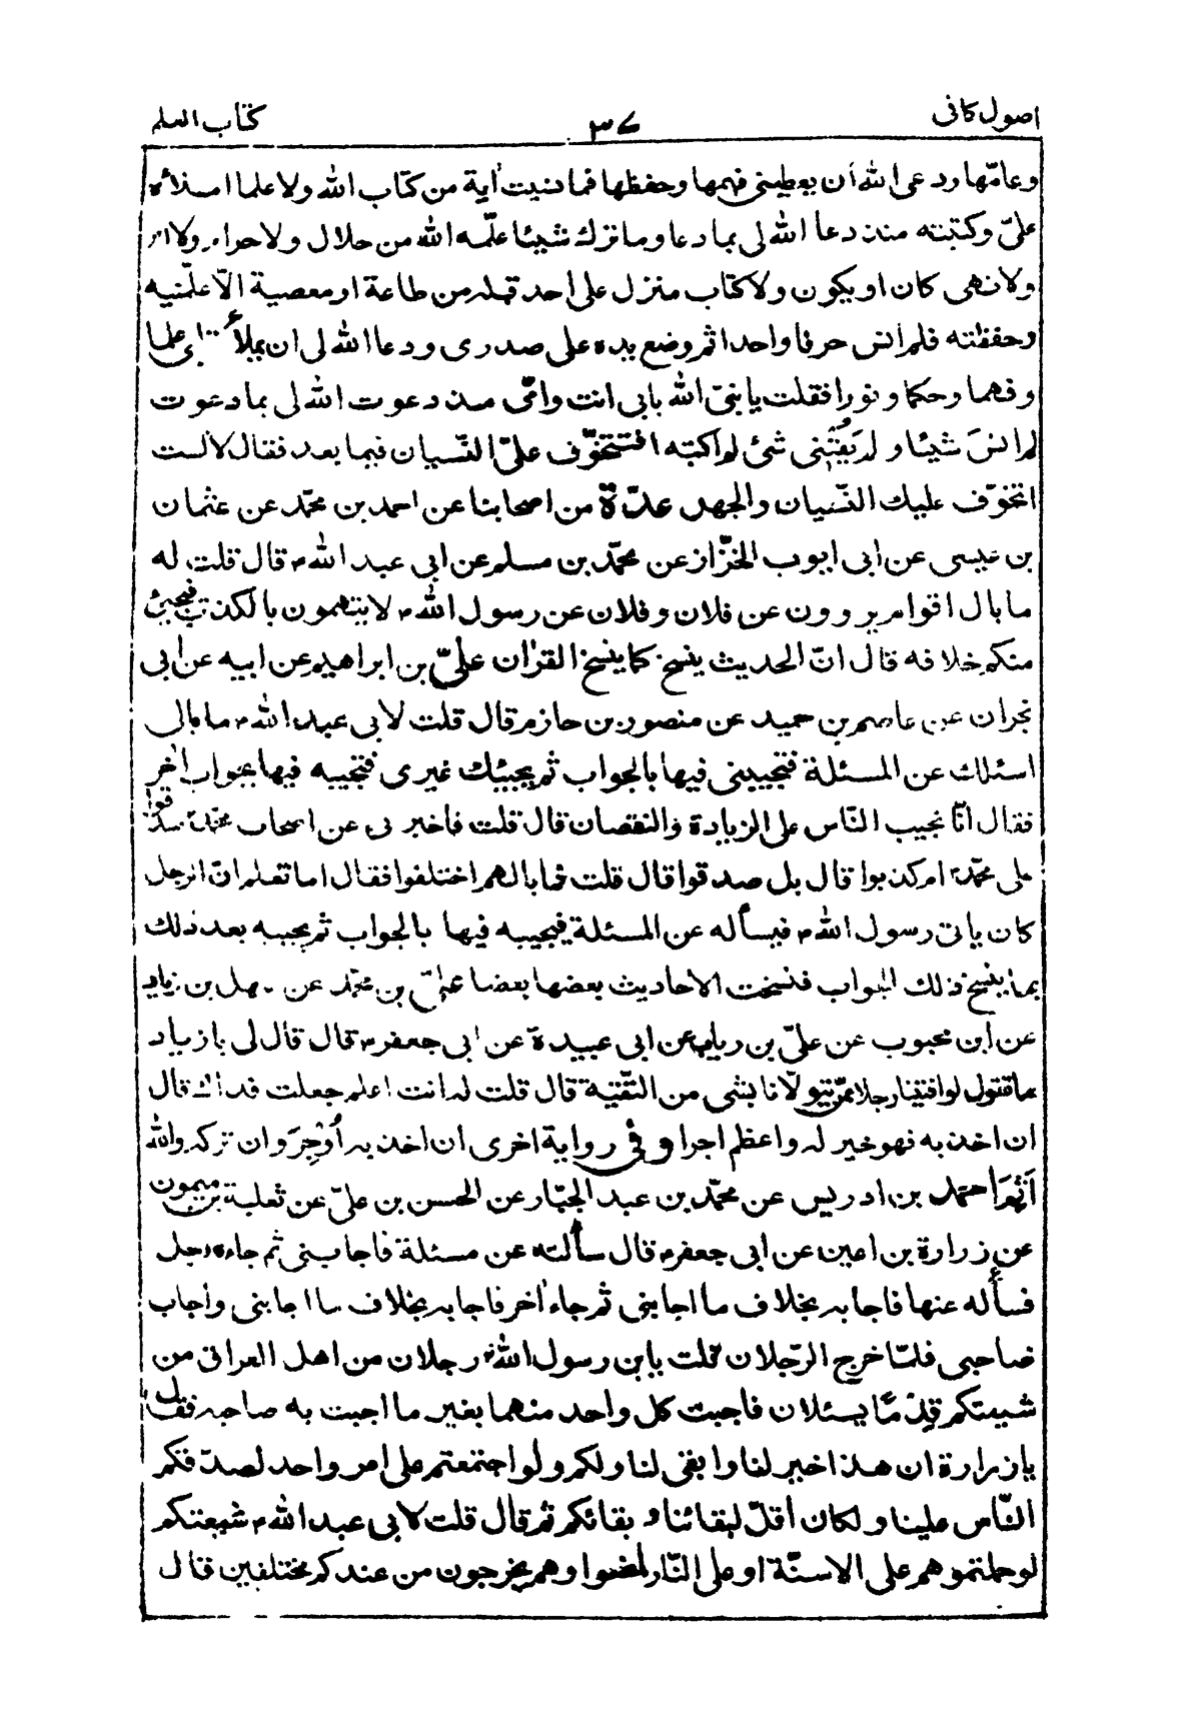 اصول كافى ٣٧ كتاب العلم
وعامّها ودعى الله أن يعطينى فهمها وحفظها فما نسيت آية من كتاب الله ولا علما املاه
علىّ وكتبته منذ دعا الله لى بما دعا وما ترك شيئا علّمه الله من حلال ولا حرام ولا امر
ولا نهى كان او يكون ولا كتاب منزل على احد قبله من طاعة او معصية الّا علّمنيه
وحفظته فلم انس حرفا واحدا ثم وضع يده على صدرى ودعا الله لى ان يملأ قلبى علما
وفهما وحكما ونورا فقلت يا نبىّ الله بابى انت وامّى مذ دعوت الله لى بما دعوت
لم انسَ شيئا ولم يَفُتْنى شئ لم اكتبه افتتخوّف علىّ النّسيان فيما بعد فقال لا لست
اتخوّف عليك النّسيان والجهل عدّة من اصحابنا عن احمد بن محمّد عن عثمان
بن عيسى عن ابى ايوب الخزّاز عن محمّد بن مسلم عن ابى عبد الله م قال قلت له
ما بال اقوام يروون عن فلان وفلان عن رسول الله م لا يتهمون بالكذب فيجئ
منكم خلافه قال انّ الحديث ينسخ كما ينسخ القرٰان علىّ بن ابراهيم عن ابيه عن ابى
نجران عن عاصم بن حميد عن منصور بن حازم قال قلت لابى عبد الله م ما بالى
اسئلك عن المسئلة فتجيبنى فيها بالجواب ثم يجيئك غيرى فتجيبه فيها بجواب اٰخر
فقال انّا نجيب النّاس على الزيادة والنقصان قال قلت فاخبرنى عن اصحاب محمّد صدقوا
على محمّد ام كذبوا قال بل صدقوا قال قلت فما بالهم اختلفوا فقال اما تعلم انّ الرجل
كان ياتى رسول الله م فيسأله عن المسئلة فيجيبه فيها بالجواب ثم يجيبه بعد ذلك
بما ينسخ ذلك الجواب فنسخت الاحاديث بعضها بعضا علىّ بن محمّد عن سهل بن زياد
عن ابن محبوب عن علىّ بن رياب عن ابى عبيدة عن ابى جعفر م قال قال لى يا زياد
ما تقول لو افتينا رجلا ممّن يتولّانا بشى من التّقيّة قال قلت له انت اعلم جعلت فداك قال
ان اخذ به فهو خير له واعظم اجرا وفى رواية اخرى ان اخذ به أُوجِرَ وان تركه والله
اَثِمَ احمد بن ادريس عن محمّد بن عبد الجبّار عن الحسن بن علىّ عن ثعلبة بن ميمون
عن زرارة بن اعين عن ابى جعفر م قال سألته عن مسئلة فاجابنى ثم جاءه رجل
فسأله عنها فاجابه بخلاف ما اجابنى ثم جاء اٰخر فاجابه بخلاف ما اجابنى واجاب
صاحبى فلمّا خرج الرّجلان قلت يابن رسول الله رجلان من اهل العراق من
شيعتكم قدِمَا يسئلان فاجبت كل واحد منهما بغير ما اجبت به صاحبه فقال
يا زرارة ان هذا خير لنا وابقى لنا ولكم ولو اجتمعتم على امر واحد لصدّقكم
النّاس علينا ولكان أقلّ لبقائنا وبقائكم ثم قال قلت لابى عبد الله م شيعتكم
لو حملتموهم على الاسنّة او على النّار لمضوا وهم يخرجون من عندكم مختلفين قال